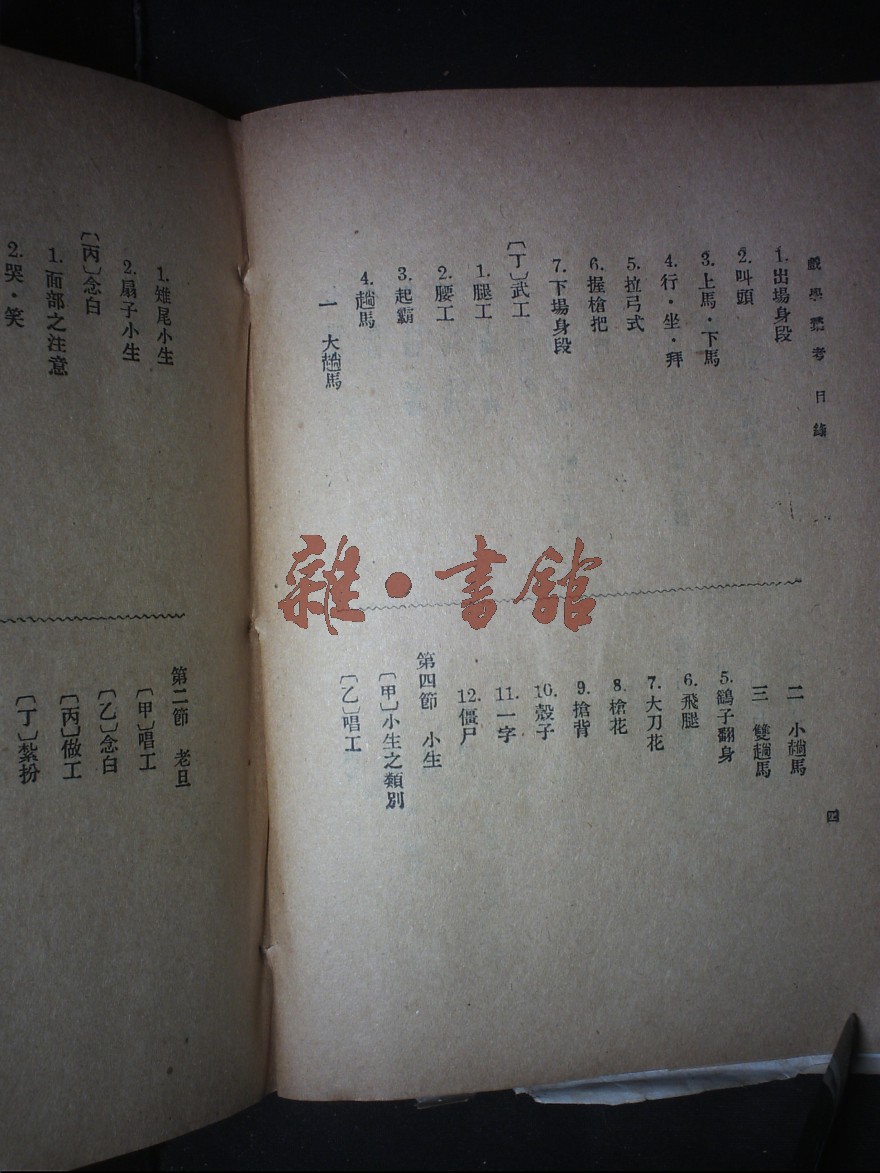 戲學彙考 目錄
四
1.出場身段
2.叫頭
3.上馬·下馬
4.行·坐·拜
5.拉弓式
6.握槍把
7.下場身段
〔丁〕武工
1.腿工
2.腰工
3.起霸
4.趟馬
一 大趟馬
二 小趟馬
三 雙趟馬
5.鷂子翻身
6.飛腿
7.大刀花
8.槍花
9.搶背
10.殼子
11.一字
12.僵尸
第四節 小生
〔甲〕小生之類別
〔乙〕唱工
1.雉尾小生
2.扇子小生
〔丙〕念白
1.面部之注意
2.哭·笑
第二節 老旦
〔甲〕唱工
〔乙〕念白
〔丙〕做工
〔丁〕紮扮
雜·書館